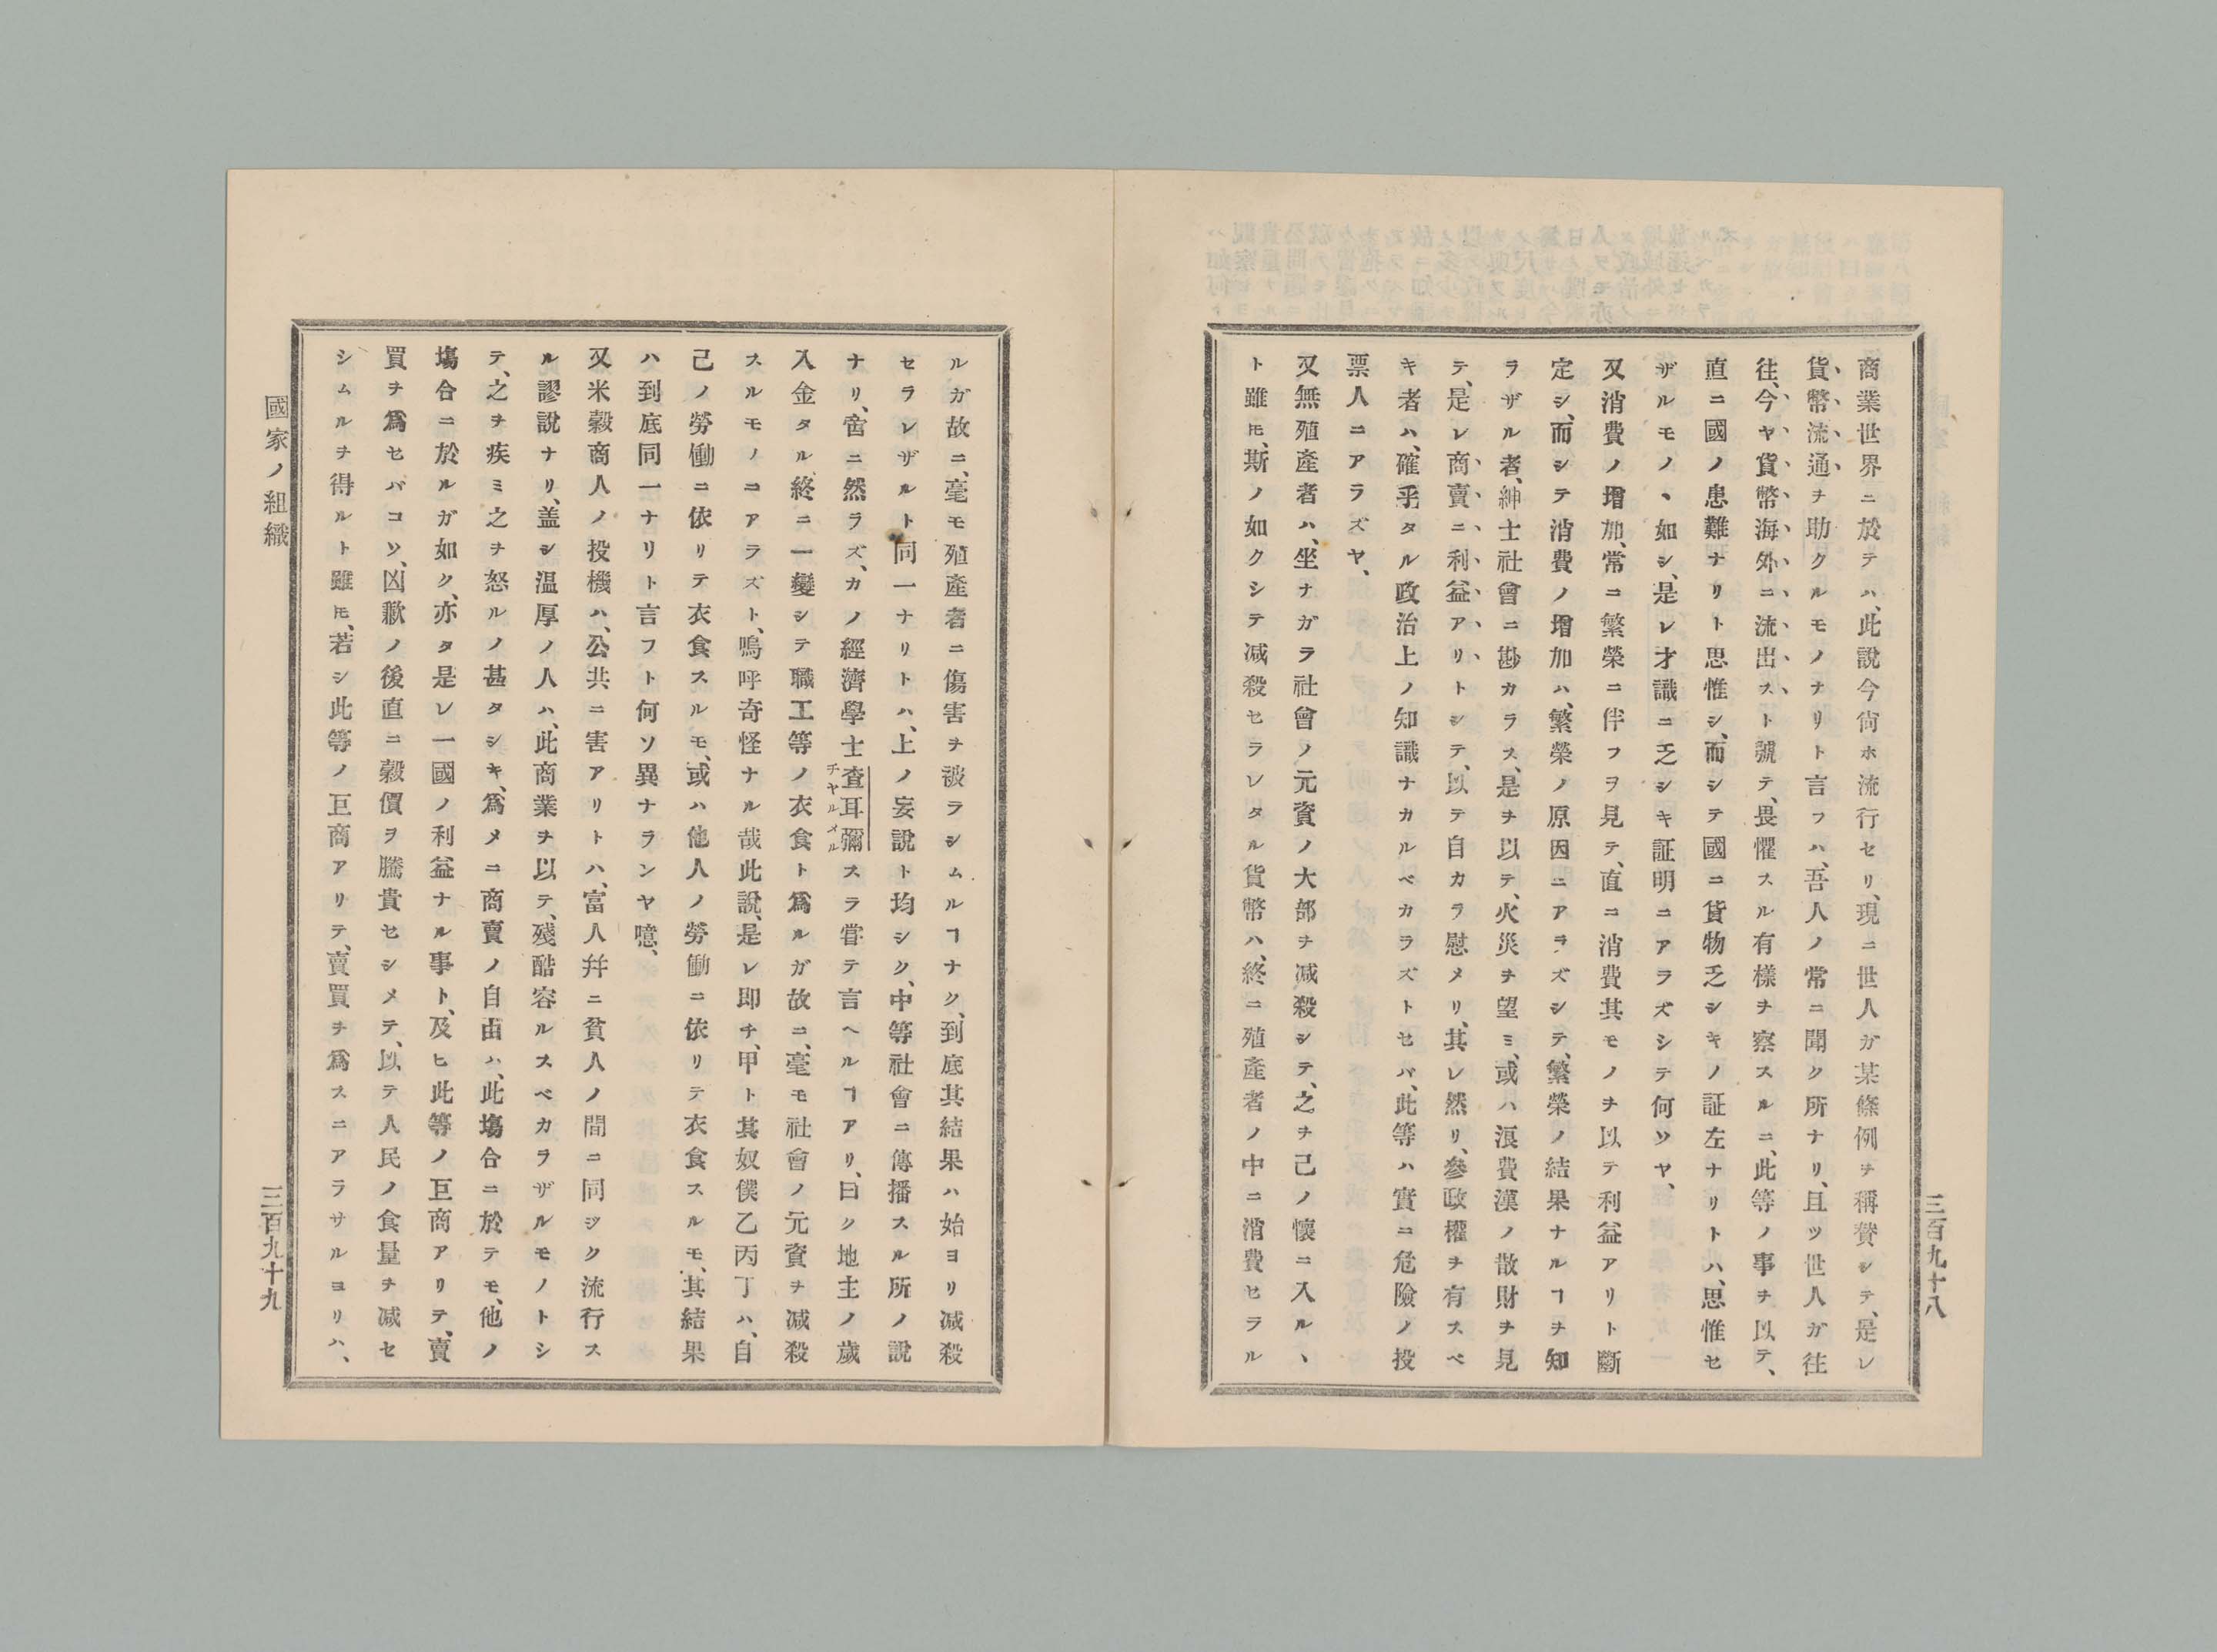 三百九十八
商業世界ニ於テハ、此說今尙ホ流行セリ、現ニ世人ガ某條例ヲ稱賛シテ、是レ
貨幣流通ヲ助クルモノナリト言フハ、吾人ノ常ニ聞ク所ナリ、且ツ世人ガ往
往、今ヤ貨幣海外ニ流出スト號テ、畏懼スル有樣ヲ察スルニ、此等ノ事ヲ以テ、
直ニ國ノ患難ナリト思惟シ、而シテ國ニ貨物乏シキノ証左ナリトハ、思惟セ
ザルモノヽ如シ、是レ才識ニ乏シキ証明ニアラズシテ何ソヤ、
又消費ノ增加、常ニ繁榮ニ伴フヲ見テ、直ニ消費其モノヲ以テ利益アリト斷
定シ、而シテ消費ノ增加ハ、繁榮ノ原因ニアラズシテ、繁榮ノ結果ナルヿヲ知
ラザル者、紳士社會ニ尠カラス、是ヲ以テ、火災ヲ望ミ、或ハ浪費漢ノ散財ヲ見
テ、是レ商賣ニ利益アリトシテ、以テ自カラ慰メリ、其レ然リ、參政權ヲ有スベ
キ者ハ、確乎タル政治上ノ知識ナカルベカラズトセバ、此等ハ實ニ危險ノ投
票人ニアラズヤ、
又無殖產者ハ、坐ナガラ社會ノ元資ノ大部ヲ减殺シテ、之ヲ己ノ懷ニ入ルヽ
ト雖ㇳモ、斯ノ如クシテ减殺セラレタル貨幣ハ、終ニ殖產者ノ中ニ消費セラル
ルガ故ニ、毫モ殖產者ニ傷害ヲ被ラシムルヿナク、到底其結果ハ始ヨリ减殺
セラレザルト同一ナリトハ、上ノ妄說ト均シク、中等社會ニ傳播スル所ノ說
ナリ、啻ニ然ラズ、カノ經濟學士査耳彌スラ甞テ言ヘルヿアリ、曰ク地主ノ歲
チヤルメル
入金タル、終ニ一變シテ職工等ノ衣食ト爲ルガ故ニ、毫モ社會ノ元資ヲ减殺
スルモノニアラズト、嗚呼奇怪ナル哉此說、是レ即チ、甲ト其奴僕乙丙丁ハ、自
己ノ勞働ニ依リテ衣食スルモ、或ハ他人ノ勞働ニ依リテ衣食スルモ、其結果
ハ到底同一ナリト言フト何ソ異ナランヤ噫、
又米穀商人ノ投機ハ、公共ニ害アリトハ、富人幷ニ貧人ノ間ニ同ジク流行ス
ル謬說ナリ、盖シ温厚ノ人ハ、此商業ヲ以テ、殘酷容ルスベカラザルモノトシ
テ、之ヲ疾ミ之ヲ怒ルノ甚タシキ、爲メニ商賣ノ自由ハ、此塲合ニ於テモ、他ノ
塲合ニ於ルガ如ク、亦タ是レ一國ノ利益ナル事ト、及ヒ此等ノ巨商アリテ、賣
買ヲ爲セバコソ、凶歉ノ後直ニ穀價ヲ騰貴セシメテ、以テ人民ノ食量ヲ减セ
シムルヲ得ルト雖ㇳモ、若シ此等ノ巨商アリテ、賣買ヲ爲スニアラサルヨリハ、
國家ノ組織
三百九十九